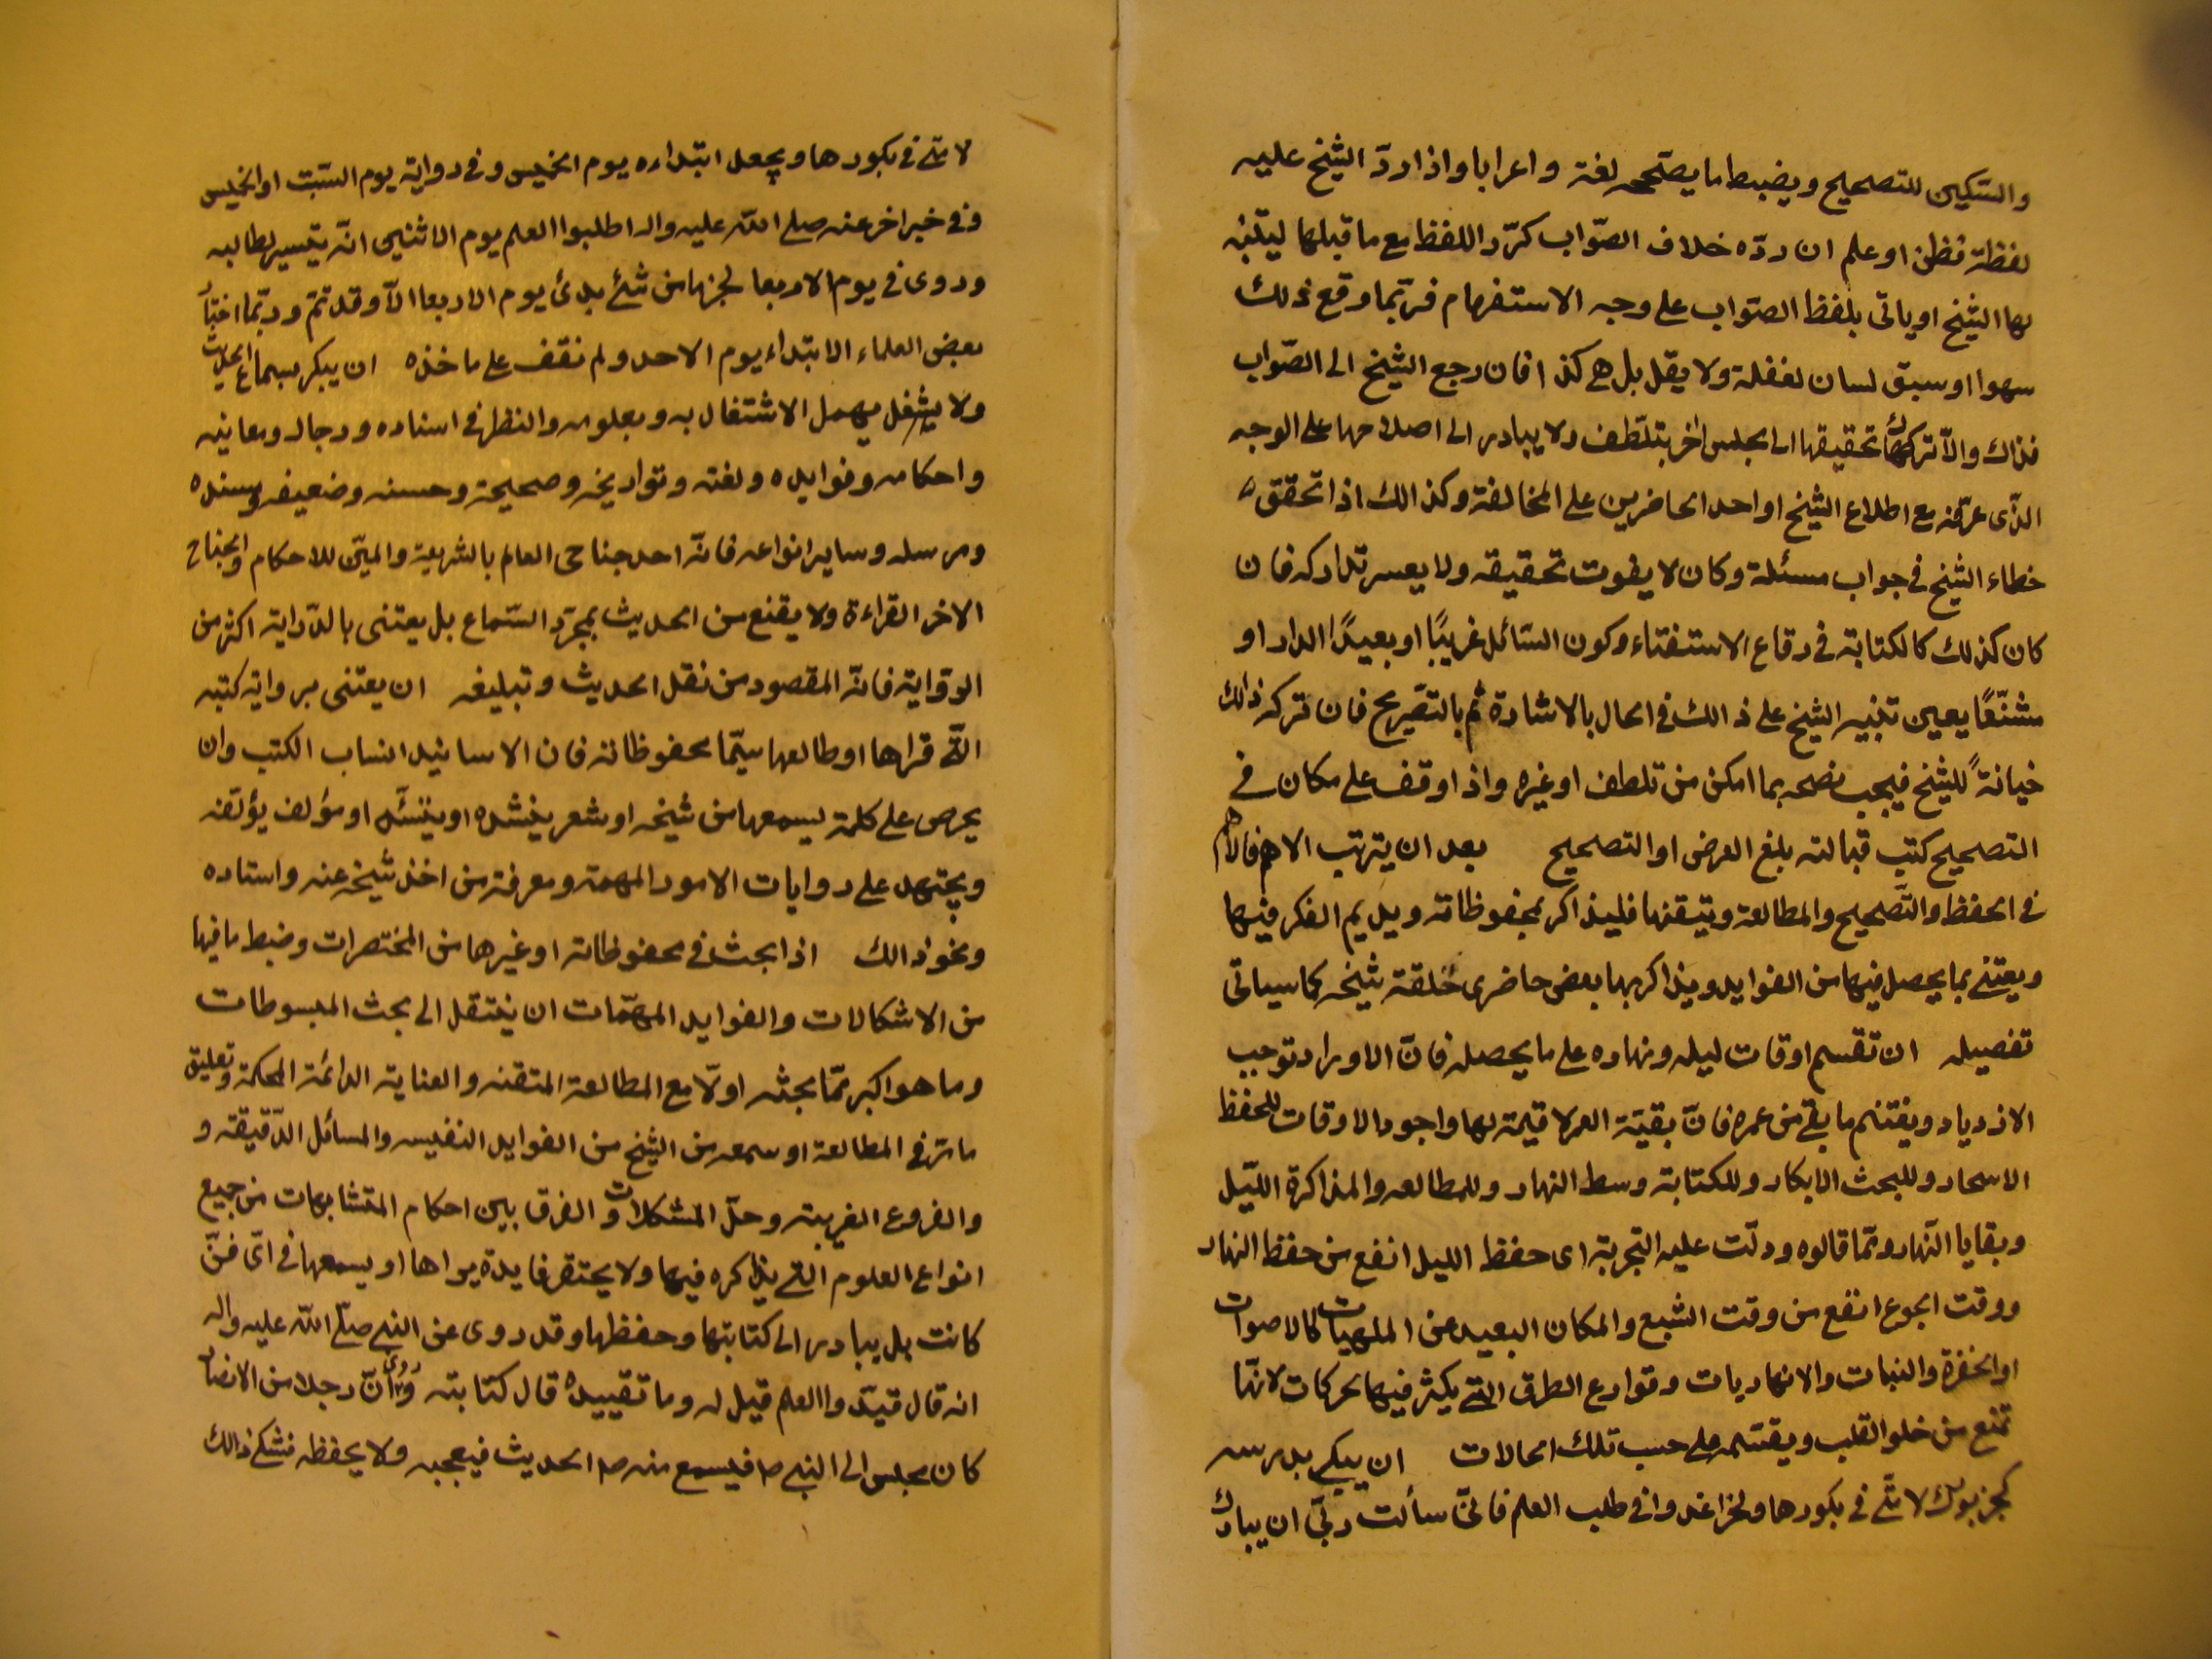 والسّكين للتصحيح ويضبط ما يصحّحه لغة واعرابا واذا ردّ الشيخ عليه
لفظة فظن او علم ان ردّه خلاف الصّواب كرّر اللفظ مع ما قبلها ليتنبّه
لها الشيخ او ياتى بلفظ الصّواب على وجه الاستفهام فربّما وقع ذلك
سهوا او سبق لسان لغفلة ولا يقل بل هى كذا فان رجع الشيخ الى الصّواب
فذاك والّا ترك تحقيقها الى مجلس اخر بتلطّف ولا يبادر الى اصلاحها على الوجه
الذّى عرّفه مع اطلاع الشيخ او احد الحاضرين على المخالفة وكذالك اذا تحقق
خطاء الشيخ فى جواب مسئلة وكان لا يفوت تحقيقه ولا يعسر تداركه فان
كان كذلك كالكتابة فى رقاع الاستفتاء وكون السّائل غريبًا او بعيدًا الدار او
مشنّعًا يعين تنبيه الشيخ على ذالك فى الحال بالاشارة ثم بالتصّريح فان تركه ذالك
خيانةً للشيخ فيجب نصحه بما امكن من تلطف او غيره واذا وقف على مكان فى
التصحيح كتب قبالته بلغ العرض او التصحيح بعد ان يترتب الاهم فالاهم
فى الحفظ والتّصحيح والمطالعة ويتيقنها فليذاكر بمحفوظاته ويديم الفكر فيها
ويعتنى بما يحصل فيها من الفوايد ويذاكر بها بعض حاضرى حَلقة شيخه كما سياتى
تفصيله ان تقسم اوقات ليله ونهاره على ما يحصله فانّ الاوراد توجب
الازدياد ويغتنم ما بقى من عمره فانّ بقيّة العمر لا قيمة لها واجود الاوقات للحفظ
الاسحار وللبحث الابكار وللكتابة وسط النهار وللمطالعه والمذاكرة اللّيل
وبقايا النّهار وممّا قالوه ودلّت عليه التجربة اى حفظ الليل انفع من حفظ النهار
ووقت الجوع انفع من وقت الشبع والمكان البعيد عن الملهيات كالاصوات
او الخضرة والنبات والانهاريات وقوارع الطرق التى يكثر فيها الحركات لانّها
تمنع من خلو القلب ويقتسمه على حسب تلك الحالات ان يبكر بدرسه
كخبر بورك لامّتى فى بكورها ولخبر اغدوا فى طلب العلم فانّى سألت ربّى ان يبارك
لامّتى فى بكورها ويجعل ابتداءه يوم الخميس وفى رواية يوم السّبت او الخميس
وفى خبر اخر عنه صلى اللّه عليه واله اطلبوا العلم يوم الاثنين انّه يتيسر لطالبه
وروى فى يوم الاربعا لخبر ما من شئ بدئ يوم الاربعا الّا وقد تمّ وربّما اختار
بعض العلماء الابتداء يوم الاحد ولم نقف على ماخذه ان يبكر بسماع الحديث
ولا يشغل يهمل الاشتغال به وبعلومه والنظر فى اسناده ورجاله ومعانيه
واحكامه وفوايده ولغته وتواريخه وصحيحه وحسنه وضعيفه ومسنده
ومرسله وساير انواعه فانّه احد جناحى العالم بالشريعة والمبيّن للاحكام والجناح
الاخر القراءة ولا يقنع من الحديث بمجرّد السّماع بل يعتنى بالدّراية اكثر من
الرّواية فانّه المقصود من نقل الحديث وتبليغه ان يعتنى برواية كتبه
الّتى قراها او طالعها سيّما محفوظاته فان الاسانيد انساب الكتب وان
يحرص على كلمة يسمعها من شيخه او شعر ينشده او ينشئه او مؤلف يؤلّفه
ويجتهد على روايات الامور المهمة ومعرفة من اخذ شيخه عنه واستاده
ونحو ذالك اذا بحث فى محفوظاته او غيرها من المختصرات وضبط ما فيها
من الاشكالات والفوايد المهمّات ان ينتقل الى بحث المبسوطات
وما هو اكبر ممّا بحثه اوّلا مع المطالعة المتقنه والعناية الدائمة المحكمة وتعليق
ما مرّ فى المطالعة او سمعه من الشيخ من الفوايد النفيسه والمسائل الدّقيقة و
والفروع الغريبة وحلّ المشكلات والفرق بين احكام المتشابهات من جميع
انواع العلوم التى يذاكره فيها ولا يحتقر فايدة يراها او يسمعها فى اىّ فنّ
كانت بل يبادر الى كتابتها وحفظها وقد روى عن النبى صلّى اللّه عليه واله
انه قال قيّدوا العلم قيل له وما تقييده قال كتابته وروى انّ رجلا من الانصار
كان يجلس الى النبى ص فيسمع منه ص الحديث فيعجبه ولا يحفظه فشكى ذالك